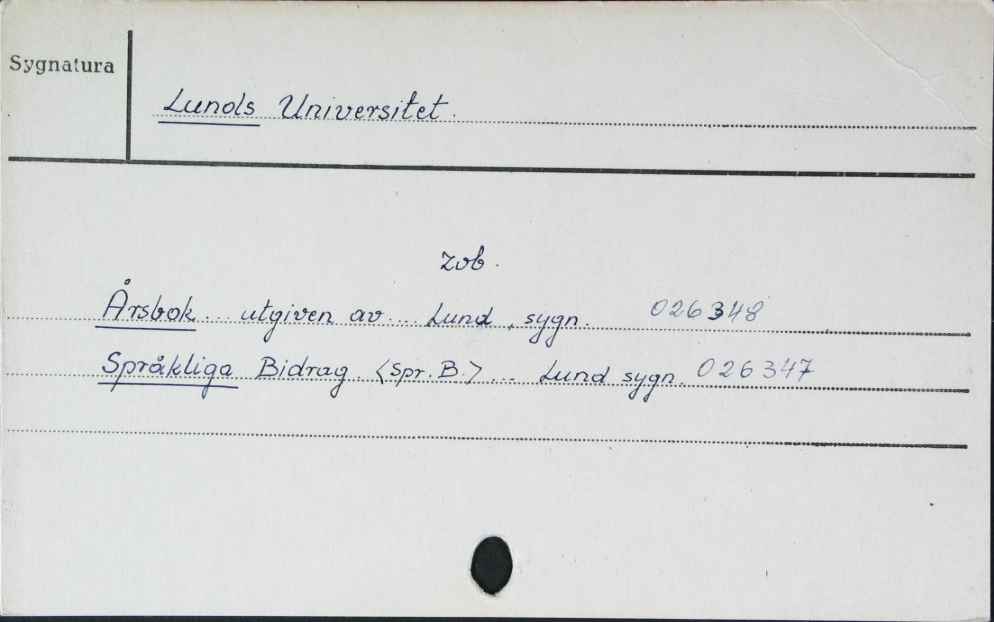 Sygnatura
Lunds Universitet.
zob.
Årsbok... utgiven av... Lund, sygn. 026348
Språkliga Bidrag. <Spr. B.>... Lund sygn. 026347